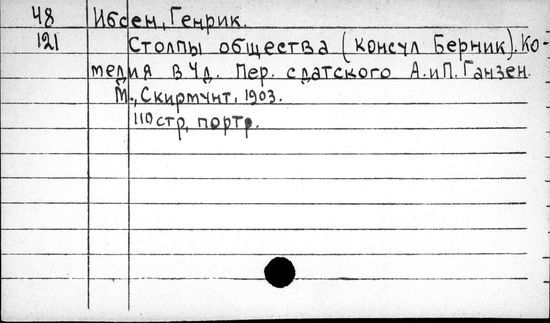 48 Ибсен, Генрик.
121 Столпы общества (консул Берник). Ко-
медия в 4д. Пер. с датского А. и П. Ганзен.
М., Скирмунт, 1903.
110 стр, портр.